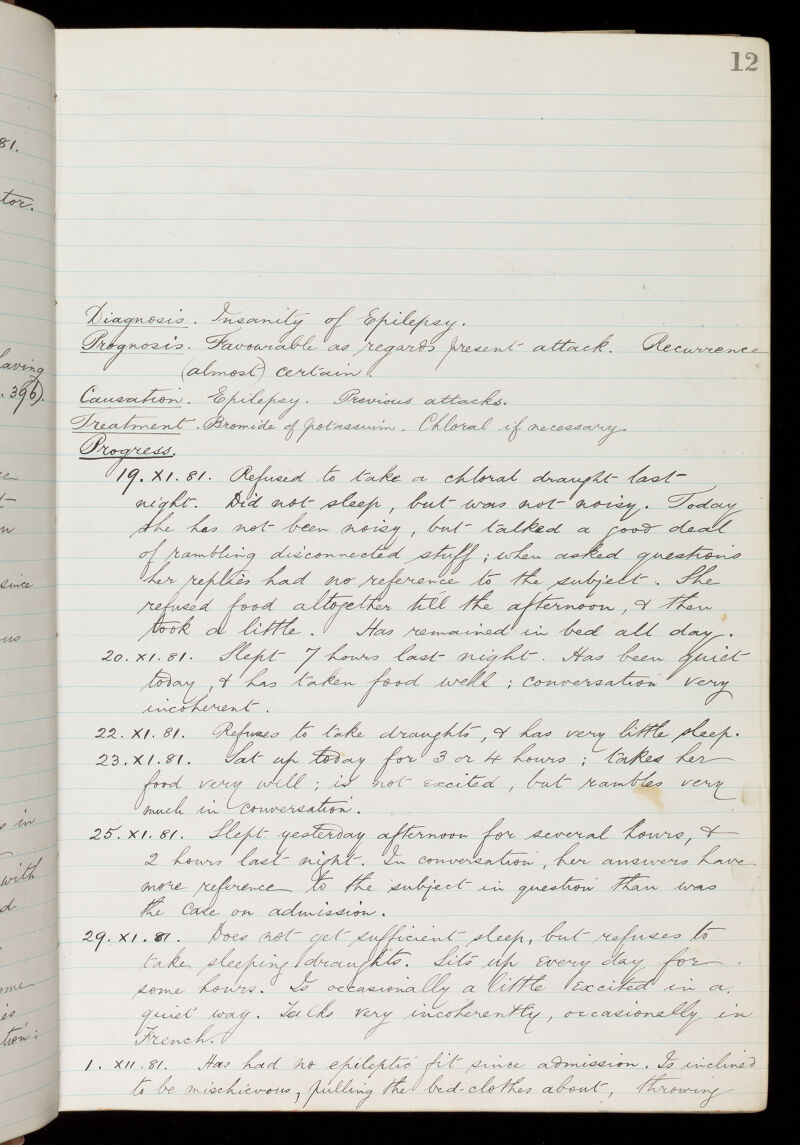 12
81.
tor.
aving
. 396).
Diagnosis. Insanity of Epilepsy.
Prognosis. Favourable as regards present attack. Recurrence
(almost) certain.
Causation. Epilepsy. Previous attacks.
Treatment. Bromide of potassium. Chloral if necessary.
Progress.
19. XI. 81. Refused to take a chloral draught last
night. Did not sleep, but was not noisy. Today
she has not been noisy, but talked a good deal
of rambling disconnected stuff; when asked questions
her replies had no reference to the subject. She
since
refused food altogether till the afternoon, & then
took a little. Has remained in bed all day.
us
20. XI. 81. Slept 7 hours last night. Has been quiet
today, & has taken food well; conversation very
incoherent.
22. XI. 81. Refuses to take draughts, & has very little sleep.
23. XI. 81. Sat up today for 3 or 4 hours; takes her
food very well; is not excited, but rambles very
much in conversation.
s in
25. XI. 81. Slept yesterday afternoon for several hours, &
2 hours last night. In conversation, her answers have
with
more reference to the subject in question than was
d
the case on admission.
29. XI. 81. Does not get sufficient sleep, but refuses to
take sleeping draughts. Sits up every day for
ome
some hours. Is occasionally a little excited in a
es
quiet way. Talks very incoherently, occasionally in
tion:
French.
1. XII. 81. Has had no epileptic fit since admission. Is inclined
to be mischievous, pulling the bed-clothes about, throwing